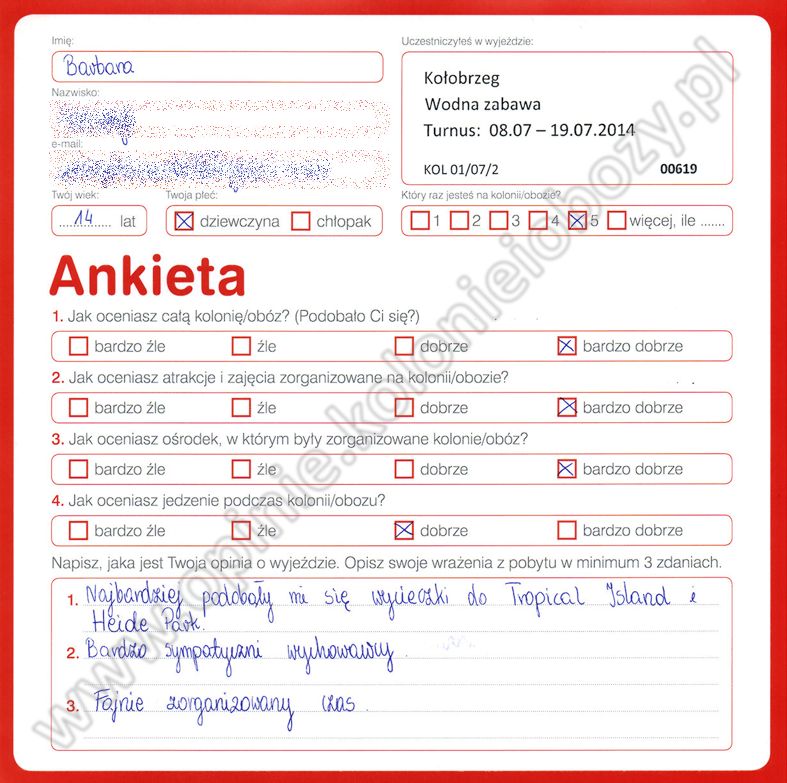 Imię:
Uczestniczyłeś w wyjeździe:
Barbara
Kołobrzeg
Nazwisko:
Wodna zabawa
Turnus: 08.07 – 19.07.2014
e-mail:
KOL 01/07/2 00619
Twój wiek: Twoja płeć: Który raz jesteś na kolonii/obozie?
14 lat dziewczyna chłopak 1 2 3 4 5 więcej, ile .......
Ankieta
1. Jak oceniasz całą kolonię/obóz? (Podobało Ci się?)
bardzo źle źle dobrze bardzo dobrze
2. Jak oceniasz atrakcje i zajęcia zorganizowane na kolonii/obozie?
bardzo źle źle dobrze bardzo dobrze
3. Jak oceniasz ośrodek, w którym były zorganizowane kolonie/obóz?
bardzo źle źle dobrze bardzo dobrze
4. Jak oceniasz jedzenie podczas kolonii/obozu?
bardzo źle źle dobrze bardzo dobrze
Napisz, jaka jest Twoja opinia o wyjeździe. Opisz swoje wrażenia z pobytu w minimum 3 zdaniach.
1. Najbardziej podobały mi się wycieczki do Tropical Island i
Heide Park.
2. Bardzo sympatyczni wychowawcy.
3. Fajnie zorganizowany czas.
www.opinie.kolonieiobozy.pl